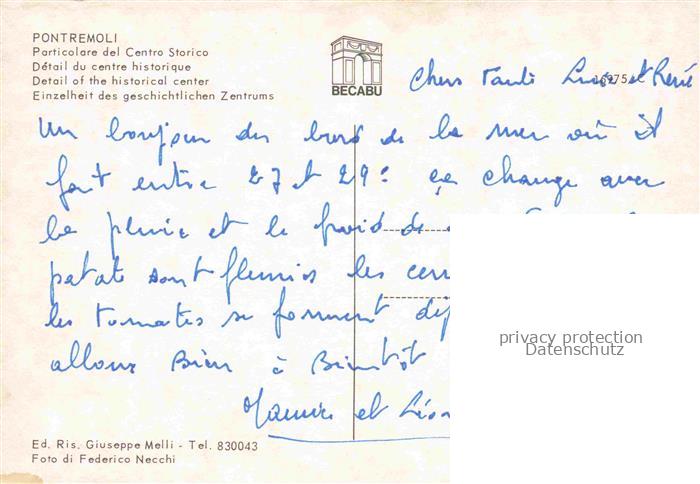 PONTREMOLI
Particolare del Centro Storico
Détail du centre historique
Detail of the historical center
Einzelheit des geschichtlichen Zentrums
BECABU
Chers Lucie et René
Un bonjour du bord de la mer où il
fait entre 27 et 29° ça change avec
la pluie et le froid de
patates sont fleuries les
les tomates se forment
allons Bien à Bientôt
et
privacy protection
Datenschutz
Ed. Ris. Giuseppe Melli - Tel. 830043
Foto di Federico Necchi